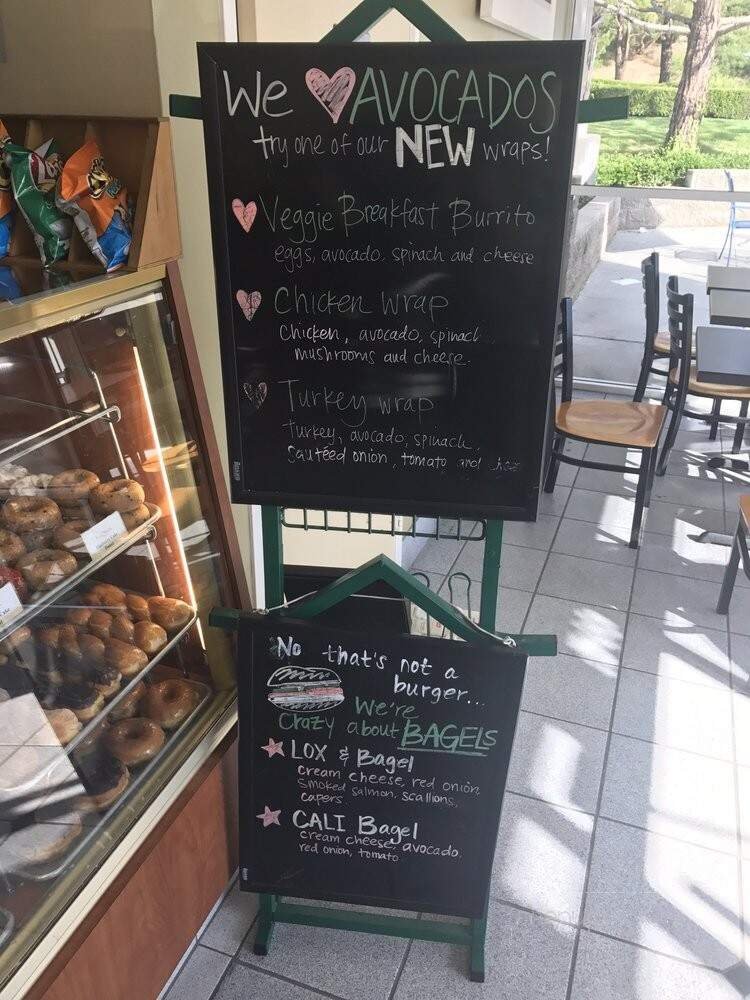 We AVOCADOS
try one of our NEW wraps!
Veggie Breakfast Burrito
eggs, avocado, spinach and cheese
Chicken Wrap
Chicken, avocado, spinach
mushrooms and cheese.
Turkey wrap
Turkey, avocado, spinach,
Sautéed onion, tomato and
No that's not a
burger...
We're
Crazy about BAGELS
LOX & Bagel
cream cheese, red onion
smoked salmon, scallions,
capers
CALI Bagel
cream cheese, avocado.
red onion, tomato